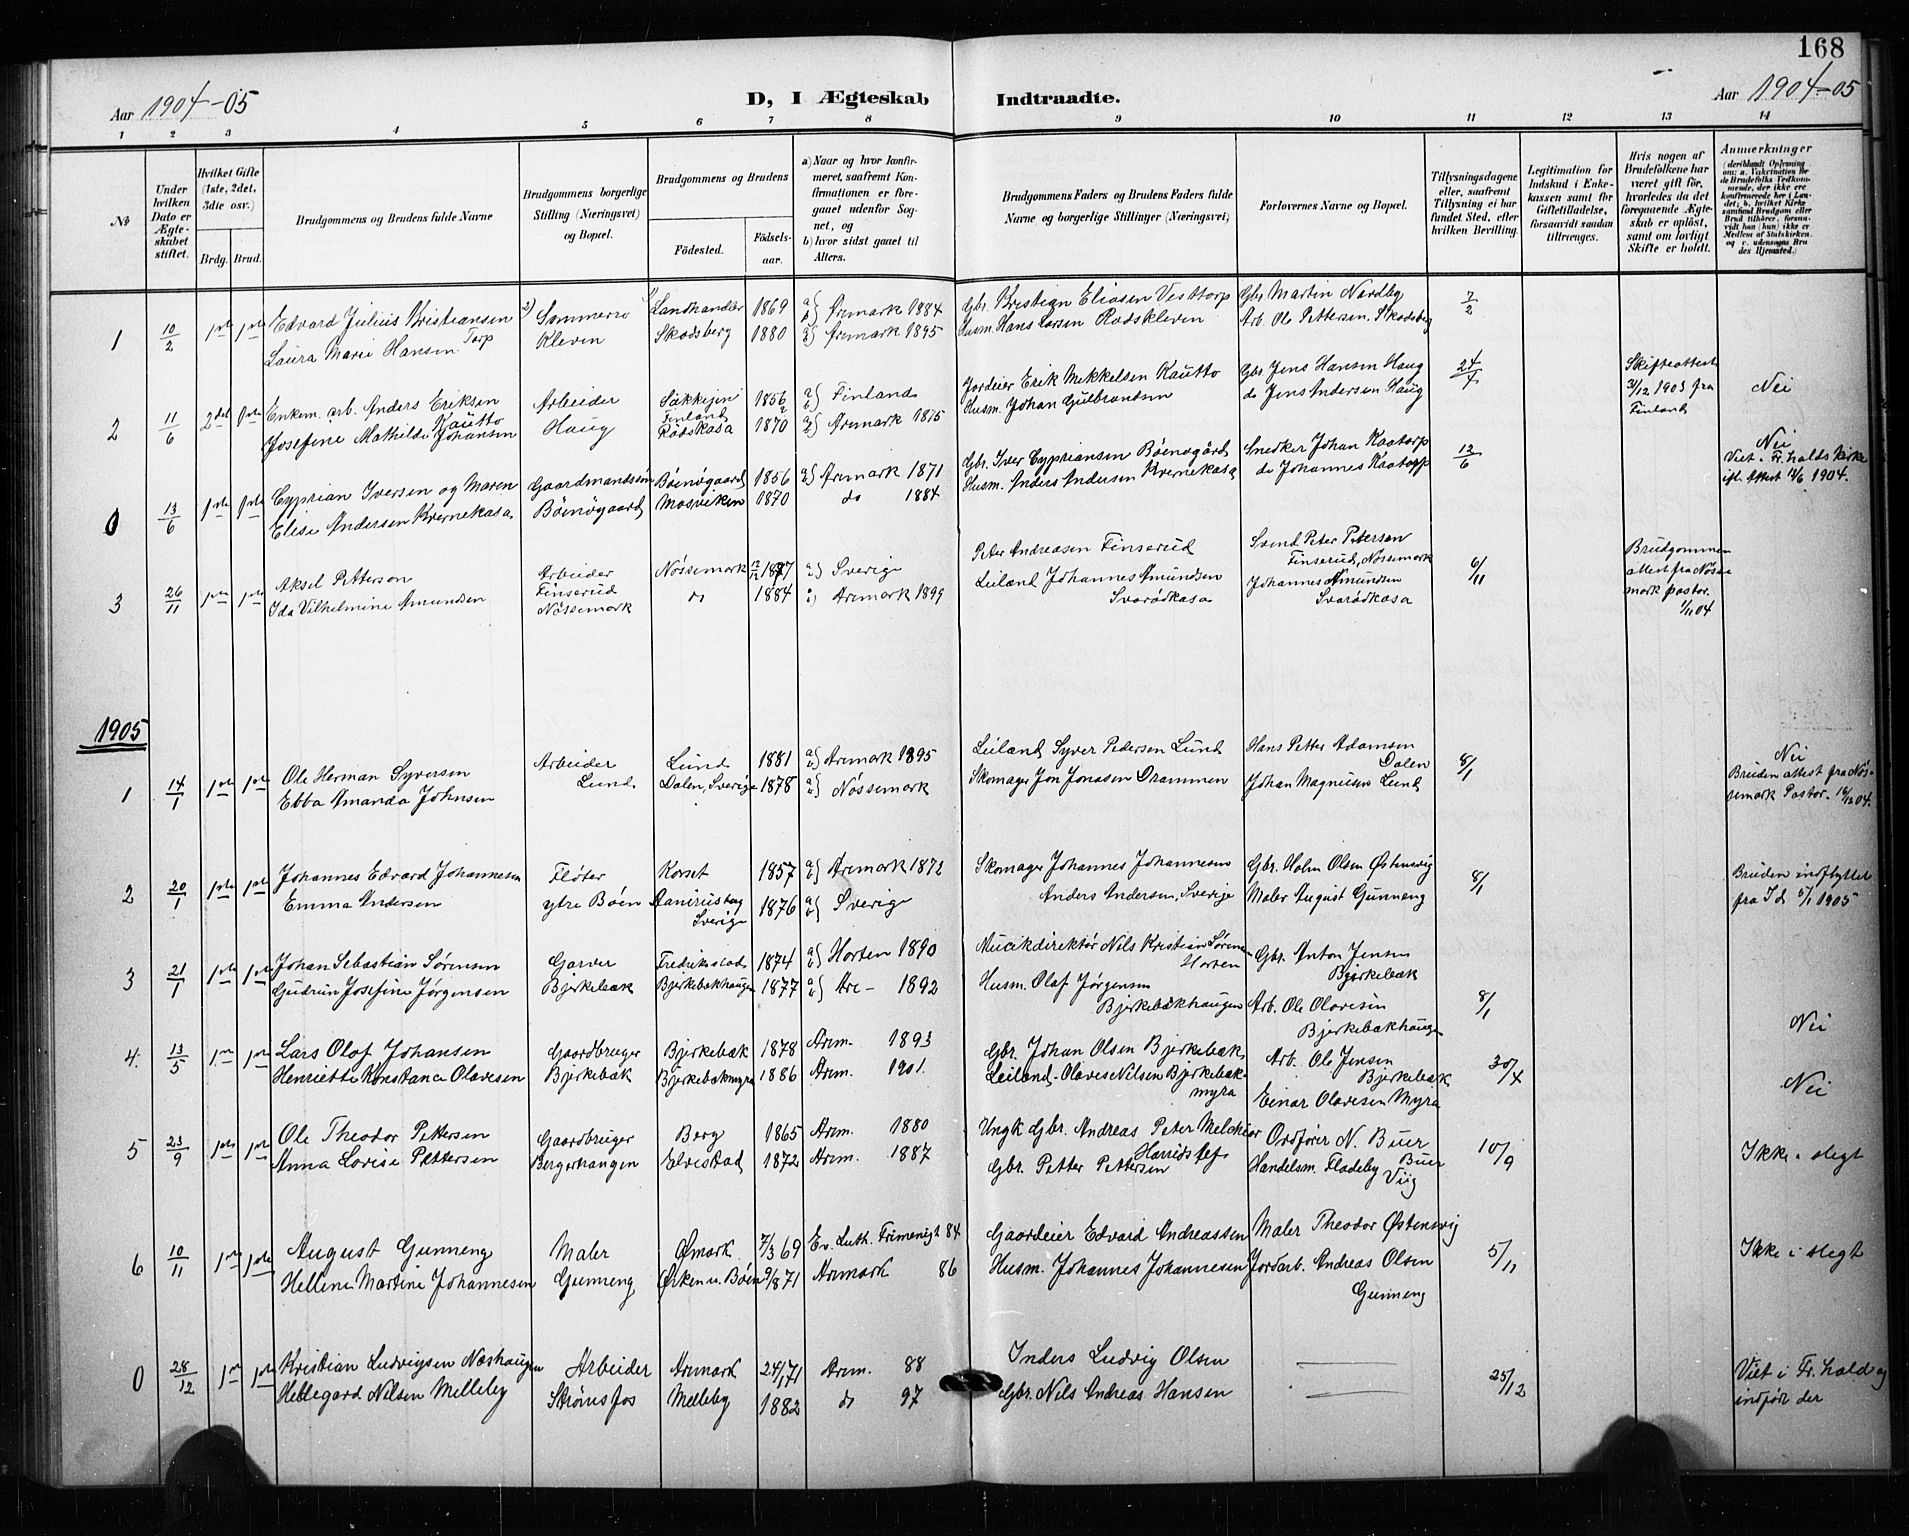 168
Aar 1904-05
D, I Ægteskab Indtraadte.
Aar 1904-05
1 2 3 4 5 6 7 8 9 10 11 12 13 14
№
Under hvilken Dato er Ægteskabet stiftet.
Hvilket Gifte (1ste, 2det, 3die osv.)
Brdg. Brud.
Brudgommens og Brudens fulde Navne
Brudgommens borgerlige Stilling (Næringsvei) og Bopæl.
Brudgommens og Brudens
Födested.
Födselsaar.
a) Naar og hvor konfirmeret, saafremt Konfirmationen er foregaaet udenfor Sognet, og
b) hvor sidst gaaet til Alters.
Brudgommens Faders og Brudens Faders fulde Navne og borgerlige Stillinger (Næringsvei)
Forlovernes Navne og Bopæl.
Tillysningsdagene eller, saafremt Tillysning ei har fundet Sted, efter hvilken Bevilling.
Legitimation for Indskud i Enkekassen samt for Giftetilladelse, forsaavidt saadan tiltrænges.
Hvis nogen af Brudefolkene har været gift för, hvorledes da det foregaaende Ægteskab er oplöst, samt om lovligt Skifte er holdt.
Anmerkninger
(deriblandt Oplysning om: a. Vakcination for de Brudefolks Vedkommende, der ikke ere konfirmerede her i Landet; b. hvilket Kirkesamfund Brudgom eller Brud tilhörer, forsaavidt han (hun) ikke er Medlem af Statskirken. og c. udensogns Brudes Hjemsted.)
1 10/2 1ste 1ste Edvard Julius Kristiansen Torp 2) Sommerro 1) Landhandler 1869 a) b) Aremark 1884 Gbr. Kristian Eliasen Vesttorp Gbr Martin Nordby 7/2
Laura Marie Hansen Kleven Skodsberg 1880 a) b) Aremark 1895 Husm. Hans Larsen Rødskleven Arb. Ole Pettersen, Skodsberg
2 11/6 2det 1ste Enkem. arb. Anders Eriksen Kautto Arbeider Sakkejen Finland 1856 a) b) Finland Jordeier Erik Mekkelsen Kautto Gbr Jens Hansen Haug 24/4 Skifteattest 31/12 1903 fra Finland Nei
Josefine Mathilde Johansen Haug Rødskasa 1870 a) b) Aremark 1875 Husm. Johan Gulbrandsen do Jens Andersen Haug
0 13/6 1ste 1ste Cyprian Iversen og Maren Gaardmandssøn Bøensgaard 1856 a) Aremark 1871 Gbr. Iver Cypriansen Bøensgård Snedker Johan Kaatorp 12/6 Nei
Elise Andersen Kvernekasa Bøensgaard Mosviken 1870 do 1884 Husm. Anders Andersen Kvernekasa do Johannes Kaatorp Viet i Fr.halds Kirke
ifl. Attest 14/6 1904.
3 26/11 1ste 1ste Aksel Petterson Arbeider Finserud Nøssemark Nøssemark 1877 a) Sverige Peter Andreasen Finserud Svend Peter Petersen Finserud, Nøssemark 6/11 Brudgommen attest fra Nøssemark pastor. 1/11 04
Ida Vilhelmine Amundsen do 1884 a) Aremark 1899 Leiland Johannes Amundsen Svarødkasa Johannes Amundsen Svarødkasa
1905
1 14/1 1ste 1ste Ole Herman Syversen Arbeider Lund 1881 a) b) Aremark 1895 Leiland Syver Pedersen Lund Hans Petter Adamsen Dalen 8/1 Nei
Ebba Amanda Johnsen Lund Dalen, Sverige 1878 a) b) Nøssemark Skomager Jon Jonasen Drammen Johan Magnusen Lund Bruden attest fra Nøssemark Pastor. 16/12 04.
2 20/1 1ste 1ste Johannes Edvard Johannesen Fløter Korset 1857 a) b) Aremark 1872 Skomager Johannes Johannesen Gbr. Holm Olsen Østensvig 8/1 Bruden indflyttet
Emma Andersen ytre Bøen Sverige 1876 a) b) Sverige Anders Andersen, Sverige Maler August Gunneng fra Id 5/1 1905
3 21/1 1ste 1ste Johan Sebastian Sørensen Garver Fredriksstad 1874 a) b) Horten 1890 Musikdirektør Nils Kristian Sørensen Horten Gbr. Anton Jensen Bjerkebæk
Gudrun Josefine Jørgensen Bjerkebæk Bjerkebækhaugen 1877 a) b) Are- 1892 Husm. Olaf Jørgensen Bjerkebækhaugen Arb. Ole Olavesen Bjerkebækhaugen 8/1 Nei
4. 13/5 1ste 1ste Lars Olaf Johansen Gaardbruger Bjerkebæk 1878 Arem. 1893 Gbr. Johan Olsen Bjerkebæk Arb. Ole Jensen Bjerkebæk 30/4 Nei
Henriette Konstance Olavesen Bjerkebæk Bjerkebækmyra 1886 Arem. 1901. Leiland. Olaves Nilsen Bjerkebækmyra Einar Olavesen Myra
5 23/9 1ste 1ste Ole Theodor Pettersen Gaardbruger Berg 1865 Arem. 1880 Ungk Gbr. Andreas Peter Melchior Ordfører N. Buer Buer 10/9 Ikke i slegt
Anna Lovise Pettersen Bergerhaugen Elvestad 1872 Arem. 1887 Gbr. Petter Pettersen Handelsm. Fladeby Viig
6 10/11 1ste 1ste August Gunneng Maler Ømark 7/3 69 Ev. Luth. Frimenigt 84 Gaardeier Edvard Andreassen Maler Theodor Østensvig 5/11 Ikke i slegt
Hellene Martine Johannesen Gunneng Ørken u. Bøen 9/8 71 Aremark 86 Husm. Johannes Johannesen Jordarb. Andreas Olsen Gunneng
0 28/12 1ste 1ste Kristian Ludvigsen Næshaugen Arbeider Aremark 24/1 71 Arem. 88 Inders Ludvig Olsen 25/12 Viet i Fr.hald og
Hildegard Nilsen Melleby Strømsfos Melleby 1882 do 97 Gbr. Nils Andreas Hansen indført der